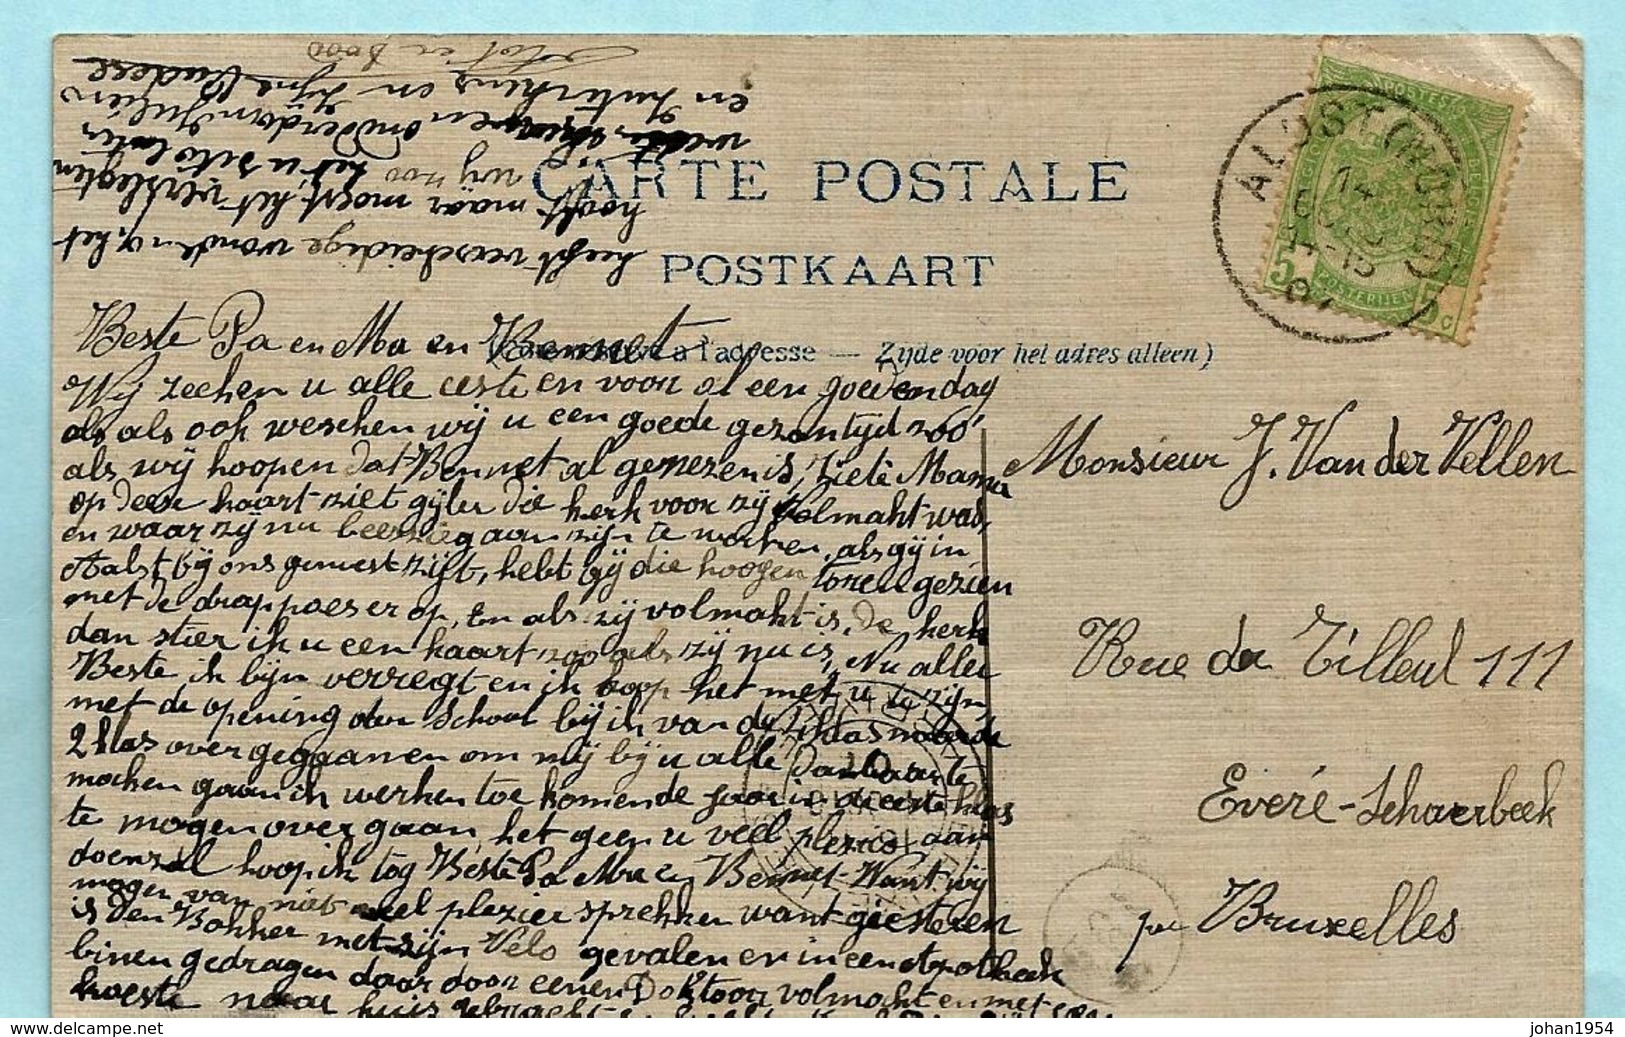 CARTE POSTALE
POSTKAART
a l'adresse — Zijde voor het adres alleen)
ALOST (NORD)
14
07
POSTES
5
POSTERIJEN
5 c
Beste Pa en Ma en Bennet
Wij zechen u alle eeste en voor al een goeden dag
als als ook weschen wij u een goede gezontijd zoo
als wij hoopen dat Bennet al genezen is, ziete Mama
op deese kaart ziet gij de kerk voor zij volmaht was,
en waar zij nu beezig aan zijn te werken, als gij in
Aalst bij ons geweest zijt, hebt gij die hoogen toren gezien
met de drappoes er op, En als zij volmaht is, de kerk
dan stier ik u een kaart zoo als zij nu is, Nu alle
Beste ik bijn verregt en ik hoop het met u te zijn,
met de opening der School bij ik van de klas naar de
2 klas over gegaanen om mij bij u alle dankaar te
maken gaan ik werken toe komende jaar in de eeste klas
te mogen over gaan, het geep u veel plezier aan
doen zal hoop ik tog Beste Pa Ma en Bennet Want wij
mogen van niet veel plezier sprekken want giesteren
is den Bakker met zijn Vélo gevalen en in een apotheek
binen gedragen daar door eenen Doktoor volmacht en met
koeste naar huis gebracht
heeft verscheidige wonden, het
hooft maar moest het verslegten
wij zoo het u seto laten
weten onderdom Julien
en Zusterkens en zyne Oudere
Monsieur J. Van der Vellen
Rue du Tilleul 111
Everé-Schaerbeek
par Bruxelles
johan1954